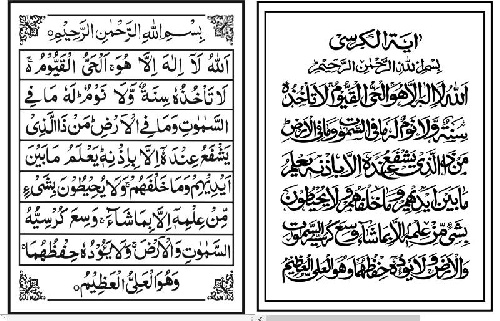 بِسْمِ اللهِ الرَّحْمٰنِ الرَّحِيْمِ
اَللهُ لَآ اِلٰهَ اِلَّا هُوَ ۚ اَلْحَيُّ الْقَيُّوْمُ ۚ
لَا تَاْخُذُهٗ سِنَةٌ وَّلَا نَوْمٌ ؕ لَهٗ مَا فِي
السَّمٰوٰتِ وَمَا فِي الْاَرْضِ ؕ مَنْ ذَا الَّذِيْ
يَشْفَعُ عِنْدَهٗٓ اِلَّا بِاِذْنِهٖ ؕ يَعْلَمُ مَا بَيْنَ
اَيْدِيْهِمْ وَمَا خَلْفَهُمْ ۚ وَلَا يُحِيْطُوْنَ بِشَيْءٍ
مِّنْ عِلْمِهٖٓ اِلَّا بِمَا شَآءَ ۚ وَسِعَ كُرْسِيُّهُ
السَّمٰوٰتِ وَالْاَرْضَ ۚ وَلَا يَـُٔوْدُهٗ حِفْظُهُمَا ۚ
وَهُوَ الْعَلِيُّ الْعَظِيْمُ
اية الكرسي
بسم الله الرحمن الرحيم
الله لا اله الا هو الحي القيوم لا تاخذه
سنة ولا نوم له ما في السموت وما في الارض
من ذا الذي يشفع عنده الا باذنه يعلم
ما بين ايديهم وما خلفهم ولا يحيطون
بشئ من علمه الا بما شاء وسع كرسيه السموت
والارض ولا يوده حفظهما وهو العلي العظيم